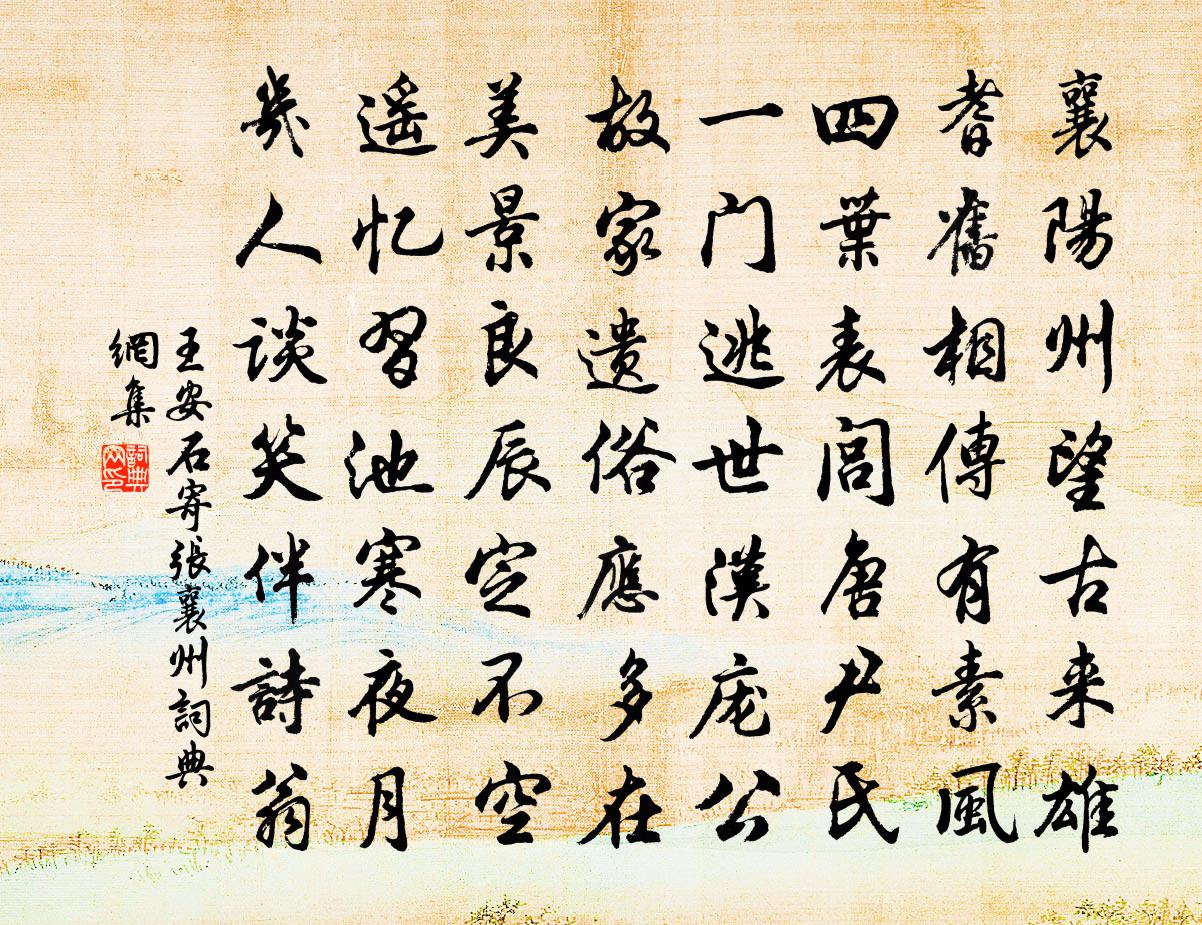 襄陽州望古来雄
耆舊相傳有素風
四葉表閭唐尹氏
一门逃世漢庞公
故家遗俗應多在
美景良辰定不空
遥忆習池寒夜月
幾人談笑伴詩翁
王安石寄張襄州詞典
網集
詞典
网印